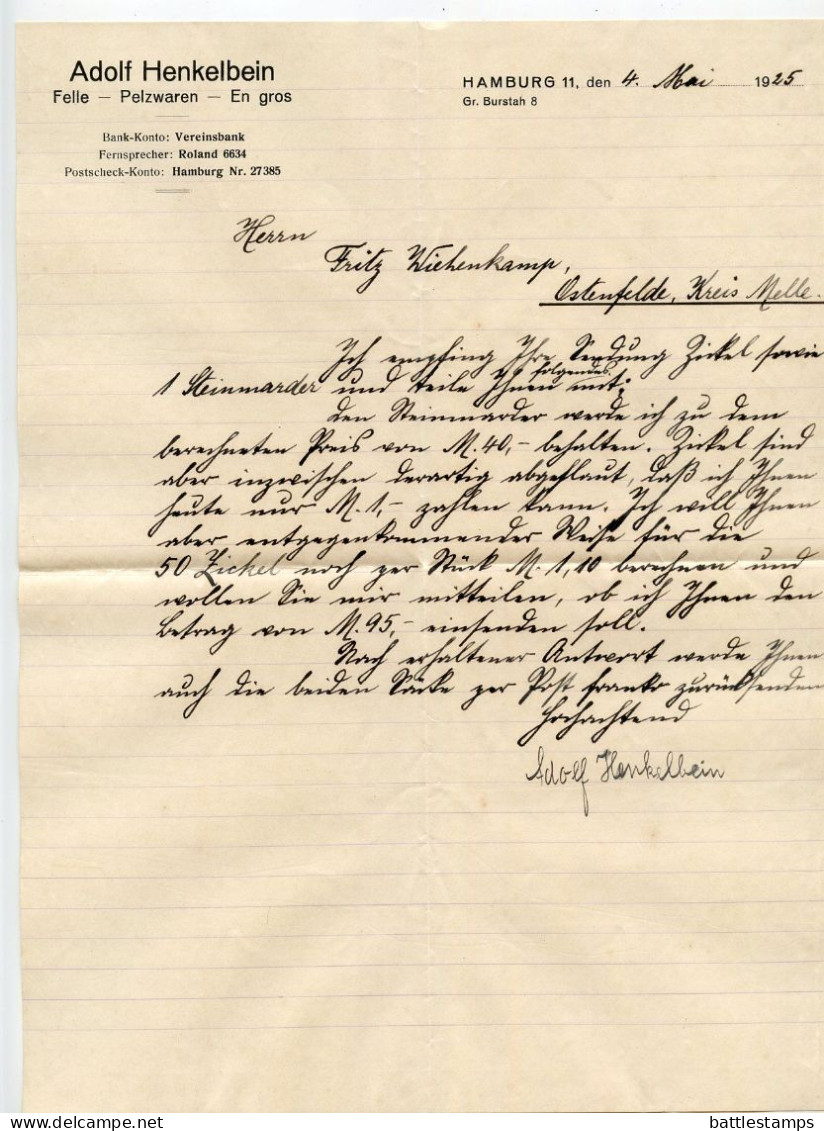 Adolf Henkelbein
Felle — Pelzwaren — En gros
Bank-Konto: Vereinsbank
Fernsprecher: Roland 6634
Postscheck-Konto: Hamburg Nr. 27385
HAMBURG 11, den 4. Mai 1925
Gr. Burstah 8
Herrn
Fritz Wiehenkamp,
Ostenfelde, Kreis Melle.
Ich empfing Ihre Sendung Zickel sowie
folgendes
1 Steinmarder und teile Ihnen mit:
Den Steinmarder werde ich zu dem
berechneten Preis von M. 40,- behalten. Zickel sind
aber inzwischen derartig abgeflaut, daß ich Ihnen
heute nur M. 1,- zahlen kann. Ich will Ihnen
aber entgegenkommender Weise für die
50 Zickel noch per Stück M. 1,10 berechnen und
wollen Sie mir mitteilen, ob ich Ihnen den
Betrag von M. 95,- einsenden soll.
Nach erhaltener Antwort werde Ihnen
auch die beiden Säcke per Post franko zurücksenden
Hochachtend
Adolf Henkelbein
battlestamps